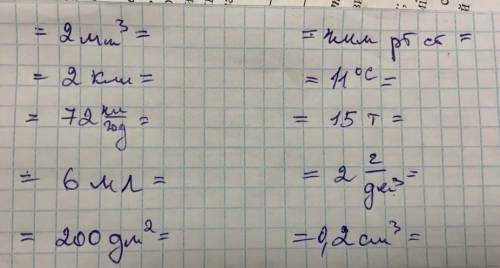 = 2 мм³ =
= 2 км =
= 72 км/год =
= 6 мл =
= 200 дм² =
= мм рт ст =
= 11°C =
= 15 т =
= 2 г/дм³ =
= 0,2 см³ =